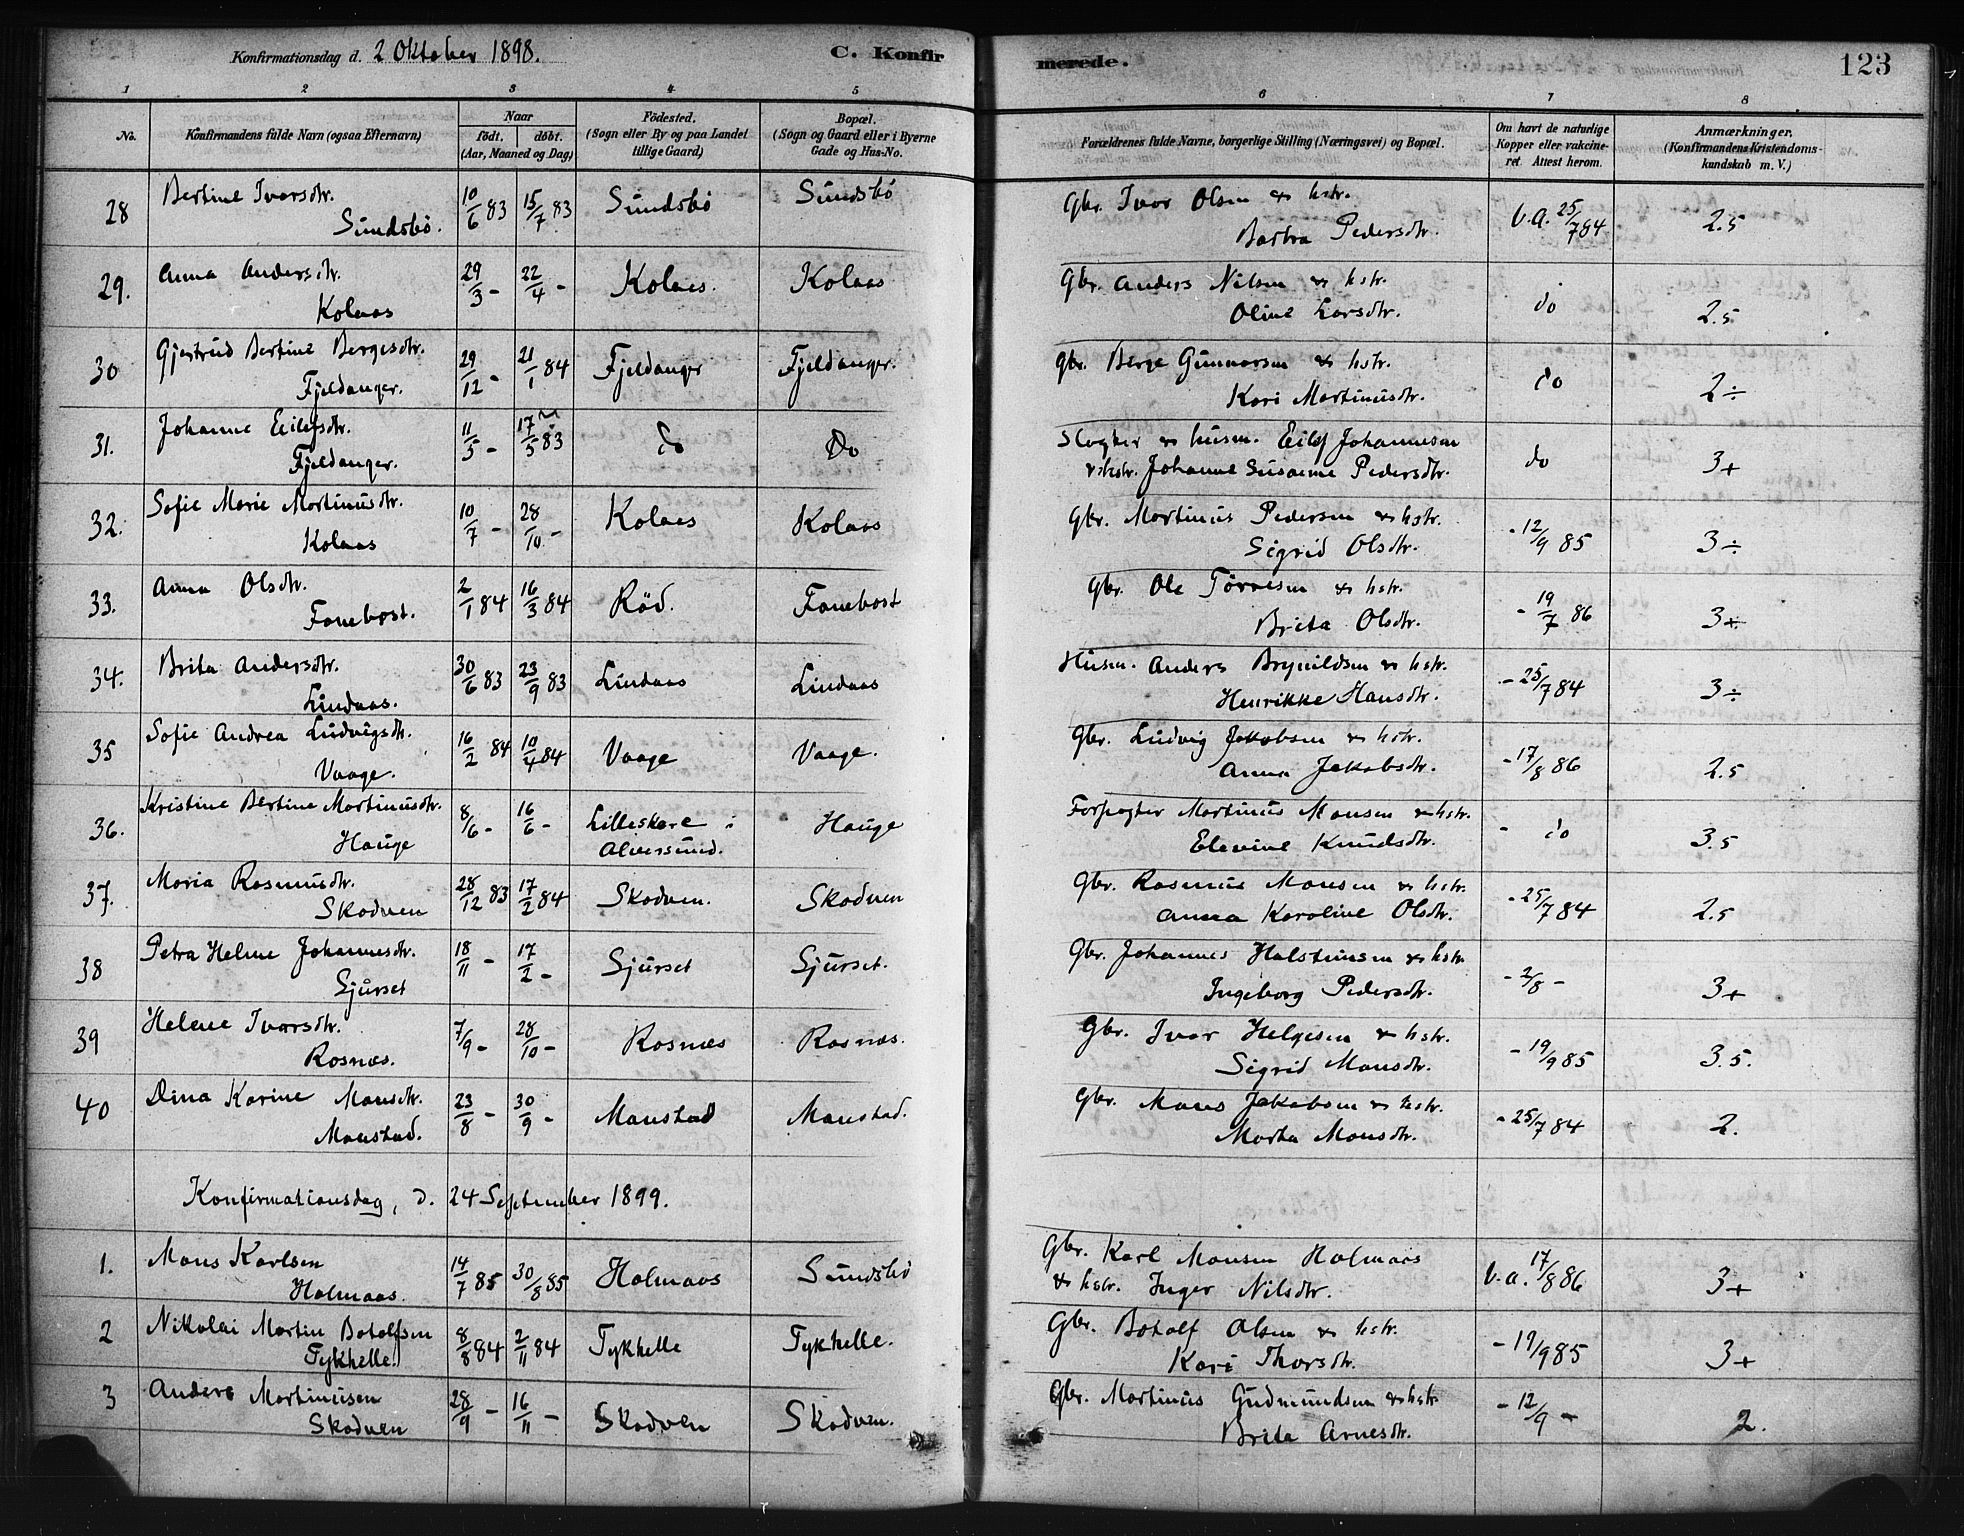 Konfirmationsdag d. 2 Oktober 1898.
C. Konfirmerede.
123
1 2 3 4 5 6 7 8
No.
Konfirmandens fulde Navn (ogsaa Efternavn)
Naar
født. døbt.
(Aar, Maaned og Dag)
Fødested.
(Sogn eller By og paa Landet
tillige Gaard)
Bopæl.
(Sogn og Gaard eller i Byerne
Gade og Hus-No.
Forældrenes fulde Navne, borgerlige Stilling (Næringsvei) og Bopæl.
Om havt de naturlige
Kopper eller vakcine-
ret. Attest herom.
Anmærkninger.
(Konfirmandens Kristendoms-
kundskab m. V.)
28 Bertine Ivarsdtr. 10/6 83 15/7 83 Sundsbø Sundsbø Gbr. Ivar Olsen & hstr. v.a. 25/7 84 2.5
Sundsbø. Barbra Pedersdtr.
29. Anna Andersdtr. 29/3 - 22/4 - Kolaas. Kolaas Gbr. Anders Nilsen & hstr. do 2.5
Kolaas Oline Larsdtr.
30 Gjertrud Bertine Bergesdtr. 29/12 - 21/1 84 Fjeldanger Fjeldanger. Gbr. Berge Gunnarsen & hstr. do 2÷
Fjeldanger. Kari Martinusdtr.
31. Johanne Eilefsdtr. 11/3 - 17/5 83 do Do Husm. Eilef Johannesen do 3+
Fjeldanger. & hstr. Johanne Susanne Pedersdtr.
32. Sofie Marie Martinusdtr. 10/7 - 28/10 - Kolaas Kolaas Gbr. Martinus Pedersen & hstr. - 12/9 85 3÷
Kolaas Sigrid Olsdtr.
33. Anna Olsdtr. 2/1 84 16/3 84 Rød. Fonebost Gbr. Ole Tørresen & hstr. - 19/7 86 3+
Fonebost. Brita Olsdtr.
34. Brita Andersdtr. 30/6 83 23/9 83 Lindaas Lindaas Husm. Anders Brynildsen & hstr. - 25/7 84 3÷
Lindaas. Henrikke Hansdtr.
35 Sofie Andrea Ludvigsdtr. 16/2 84 10/4 84 Vaage Vaage. Gbr. Ludvig Jakobsen & hstr. - 17/8 86 2.5
Vaage. Anna Jakobsdtr.
36. Kristine Bertine Martinusdtr. 8/6 - 16/6 - Lilleskare i Hauge Forpagter Martinus Monsen & hstr. - do 3.5
Hauge Alversund. Elevine Knudsdtr.
37. Maria Rasmusdtr. 28/12 83 17/2 84 Skodven. Skodven Gbr. Rasmus Monsen & hstr. - 25/7 84 2.5
Skodven Anna Karoline Olsdtr.
38 Petra Helene Johannesdtr. 18/11 - 17/2 - Sjurset Sjurset. Gbr. Johannes Halsteinsen & hstr. - 2/8 - 3+
Sjurset Ingeborg Pedersdtr.
39 Helene Ivarsdtr. 7/9 - 28/10 - Rosnæs Rosnæs. Gbr. Ivar Helgesen & hstr. - 19/9 85 3.5.
Rosnæs. Sigrid Monsdtr.
40 Dina Karine Monsdtr. 23/8 - 30/9 - Monstad Monstad. Gbr. Mons Jakobsen & hstr. - 25/7 84 2.
Monstad. Marta Monsdtr.
Konfirmationsdag, d. 24 September 1899.
1. Mons Karlsen 14/7 85 30/8 85 Holmaas Sundsbø Gbr. Karl Monsen Holmaas v.a. 17/8 86 3+
Holmaas. & hstr. Inger Nilsdtr.
2 Nikolai Martin Botolfsen 8/8 84 2/11 84 Tykhelle Tykhelle. Gbr. Botolf Olsen & hstr. - 19/9 85 3+
Tykhelle. Kari Thorsdtr.
3 Anders Martinusen 28/9 - 16/11 - Skodven Skodven. Gbr. Martinus Gudmundsen & hstr. - 12/9 - 2.
Skodven Brita Arnesdtr.